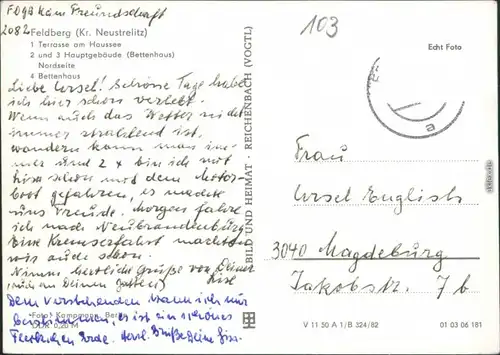 FDGB Heim Freundschaft
2082 Feldberg (Kr. Neustrelitz)
1 Terrasse am Haussee
2 und 3 Hauptgebäude (Bettenhaus)
Nordseite
4 Bettenhaus
Liebe Ursel! Schöne Tage habe
ich hier schon verlebt.
Wenn auch das Wetter nicht
immer strahlend ist,
wandern kann man im-
mer und 2 x bin ich mit
schon mit dem Motor-
boot gefahren, es machte
uns Freude. Morgen fahre
ich nach Neubrandenburg
Eine Kremserfahrt machten
wir auch schon.
Nimm herzliche Grüße von Deiner
(auch an Deinen Gatten)
Dem Vorstehenden kann ich nur
beistimmen, es ist ein schönes
Fleckchen Erde. Herzl. Grüße Deine
Foto: Kampmann, Ber
DDR 0,20 M
BILD UND HEIMAT · REICHENBACH (VOGTL)
103
Echt Foto
Frau
Ursel English
3040 Magdeburg
Jakobstr. 7b
V 11 50 A 1/B 324/82
01 03 06 181